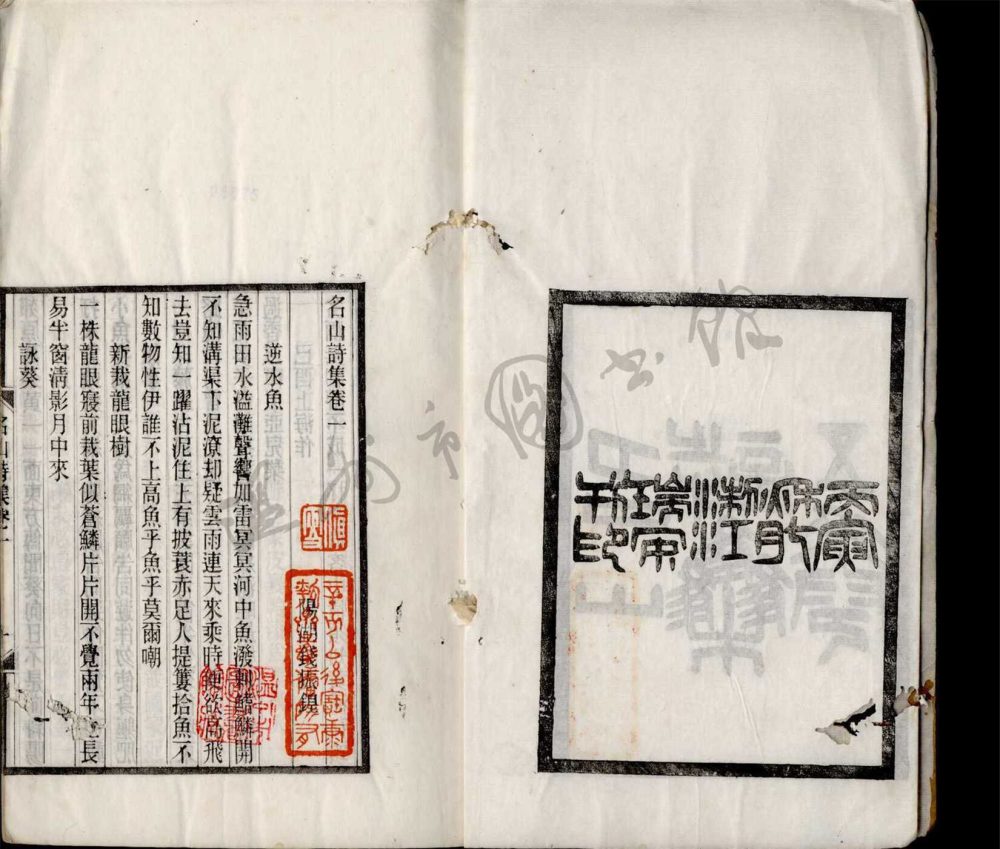 丙寅
浙江
瑞安
印
名山詩集卷一
陽湖錢振鍠
逆水魚
急雨田水溢灘聲響如雷冥冥河中魚潑剌鰭鱗開
不知溝渠下泥潦却疑雲雨連天來乘時便欲高飛
去豈知 躍沾泥住上有披蓑赤足人提簍拾魚不
知數物性伊誰不上高魚乎魚乎莫爾嘲
新栽龍眼樹
一株龍眼寢前栽葉似蒼鱗片片開不覺兩年 長
易半窗清影月中來
詠葵
名山詩集卷一
一
溫州市圖書館